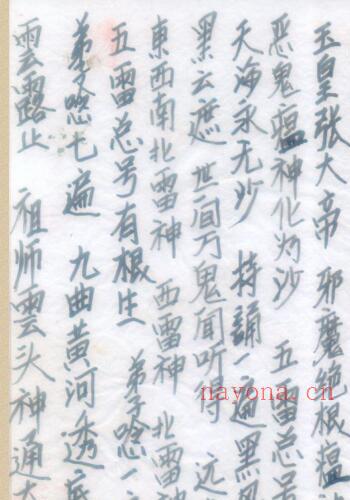 玉皇张大帝 邪魔絶根瘟
恶鬼瘟神化为沙 五雷总号
天海永无沙 持誦一遍黑风
黑云遮 世间万鬼闻听 远
東西南北雷神 西雷神 北雷神
五雷总号有根生 弟子唸一
弟子唸七遍 九曲黄河透底
雲露止 祖师雲头神通大
nayona.cn